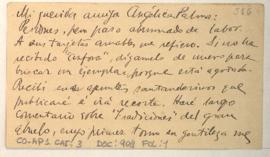 566
Mi querida amiga Angélica Palma:
Perdones, bien paso abrumado de labor.
A sus tarjetas amables me refiero. Si no ha
recibido "", dígamelo de nuevo para
buscar un ejemplar, porque está agotada.
Recibí sus apuntes santanderinos que
publicaré e irá recorte. Haré largo
comentario sobre "Tradiciones" del gran
abuelo, cuyo primer tomo su gentileza me
CO-AP1 CAJ: 3 DOC: 908 FOL: 1